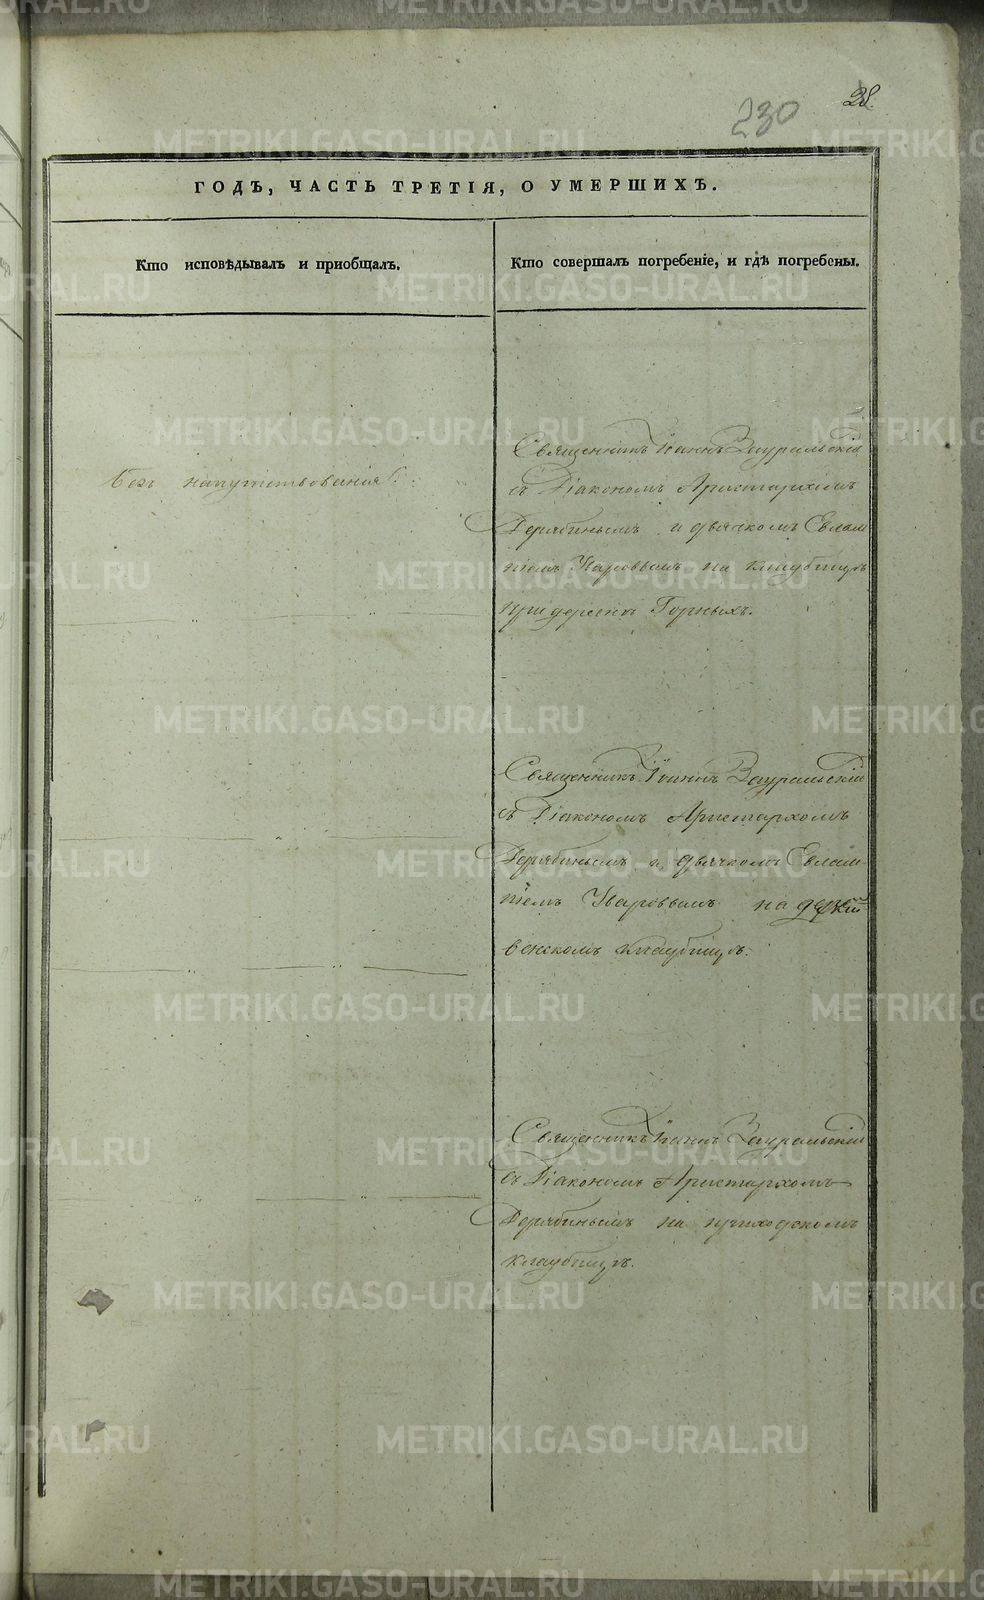 230
28.
ГОДЪ, ЧАСТЬ ТРЕТІЯ, О УМЕРШИХЪ.
Кто исповѣдывалъ и приобщалъ.
Кто совершалъ погребеніе, и гдѣ погребены.
безъ напутствованія
Священникъ Іоаннъ Зауральскій
съ Діакономъ Аристархомъ
Дерябинымъ и дьячкомъ Евлам
піемъ Наровымъ на кладбищѣ
при деревнѣ Горныхъ.
Священникъ Іоаннъ Зауральскій
съ Діакономъ Аристархомъ
Дерябинымъ и дьячкомъ Евлам-
піемъ на
венскомъ кладбищѣ.
Священникъ Іоаннъ Зауральскій
съ Діакономъ Аристархомъ
Дерябинымъ на приходскомъ
кладбищѣ.
METRIKI.GASO-URAL.RU